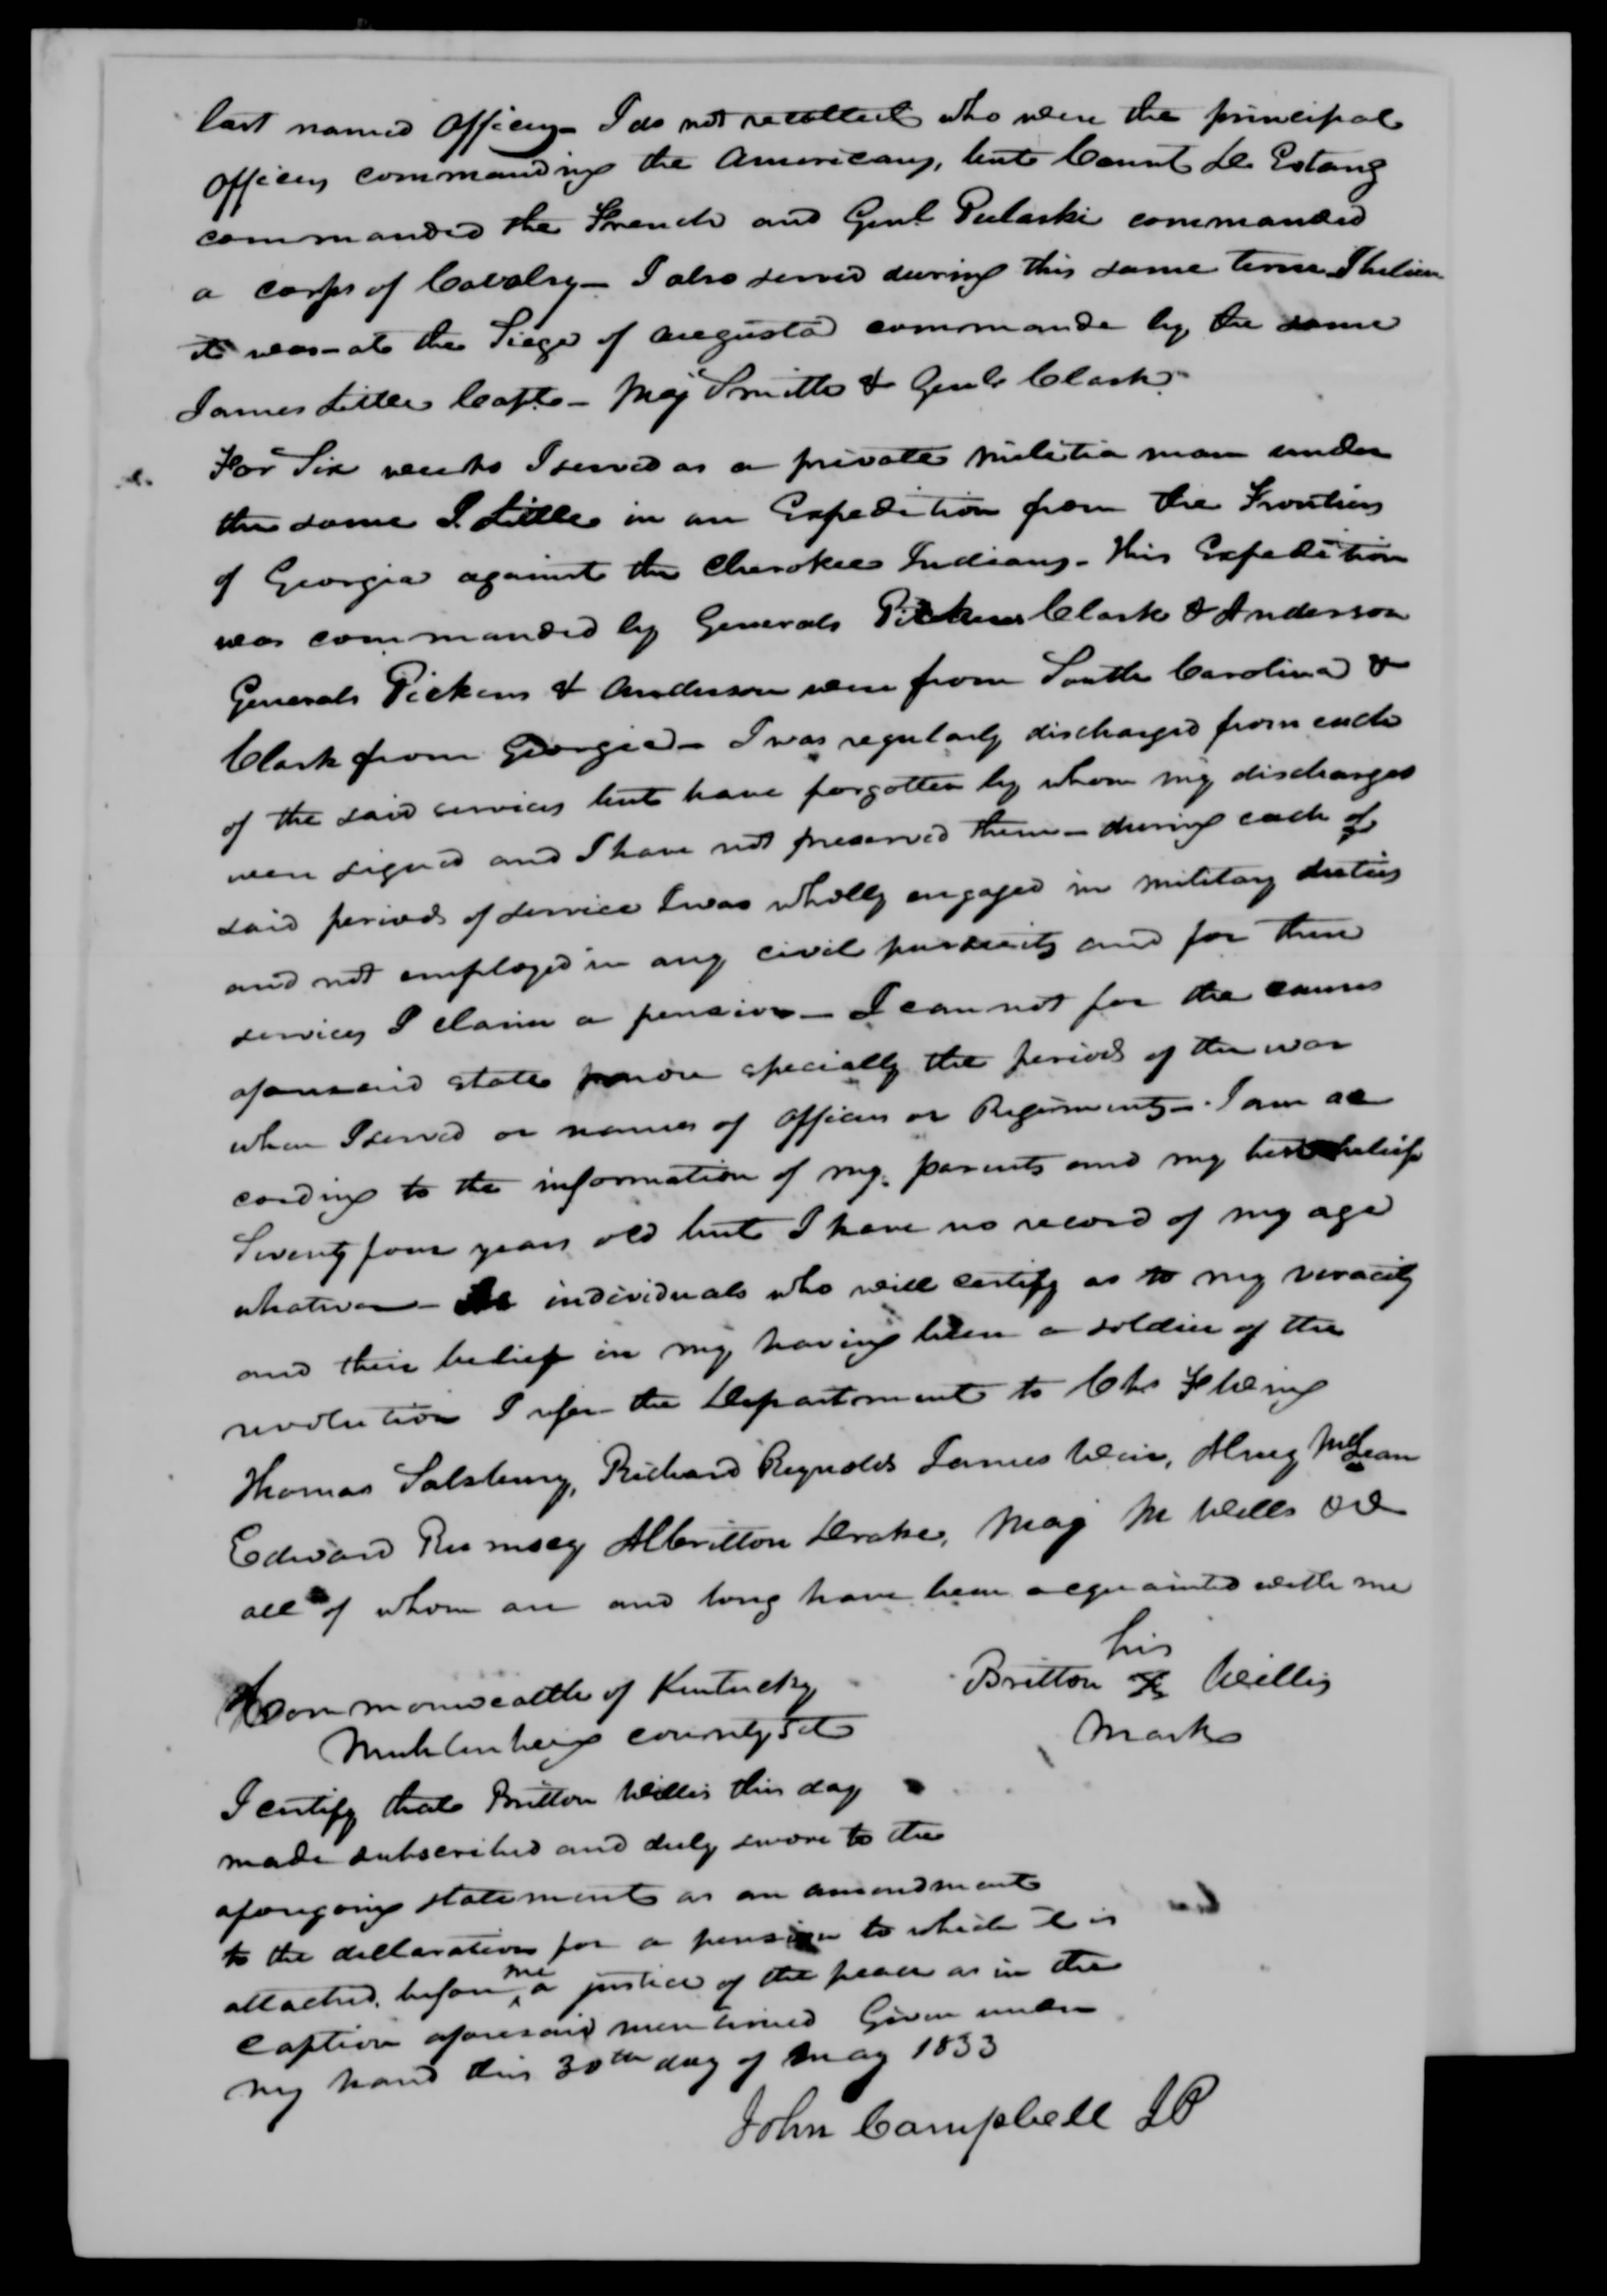 last named Officers - I do not recollect who were the principal
Officers commanding the Americans, but Count De Estang
commanded the French and Genl. Pulaski commanded
a corps of Cavalry - I also served during this same term I believe
it was - at the Siege of Augusta commande by the same
James Little Capt. - Maj Smith & Genl. Clark.
For Six weeks I served as a private militia man under
the same J. Little in an Expedition from the Frontiers
of Georgia against the Cherokee Indians - This Expedition
was commanded by Generals Pickens Clark & Anderson
Generals Pickens & Anderson were from South Carolina &
Clark from Georgia - I was regularly discharged from each
of the said services but have forgotten by whom my discharges
were signed and I have not preserved them - during each of
said periods of service I was wholly engaged in military duties
and not employed in any civil pursuits and for these
services I claim a pension - I can not for the causes
aforesaid state more specially the periods of the war
when I served or names of Officers or Regiments - I am ac
cording to the information of my parents and my best belief
Seventy four years old but I have no record of my age
whatever - As individuals who will certify as to my veracity
and their belief in my having been a soldier of the
revolution I refer the Department to Chs Fleming
Thomas Salsbury, Richard Reynolds James Weir, Alney McLean
Edward Rumsey Albritton Drake, Maj M Wells
all of whom are and long have been acquainted with me
his
Britton X Willis
mark
Commonwealth of Kentucky
Muhlenberg county Sct
I certify that Britton Willis this day
made subscribed and duly swore to the
aforegoing statement as an amendment
to the declaration for a pension to which it is
attached, before me a justice of the peace as in the
caption aforesaid mentioned Given under
my hand this 30th day of May 1833
John Campbell JP